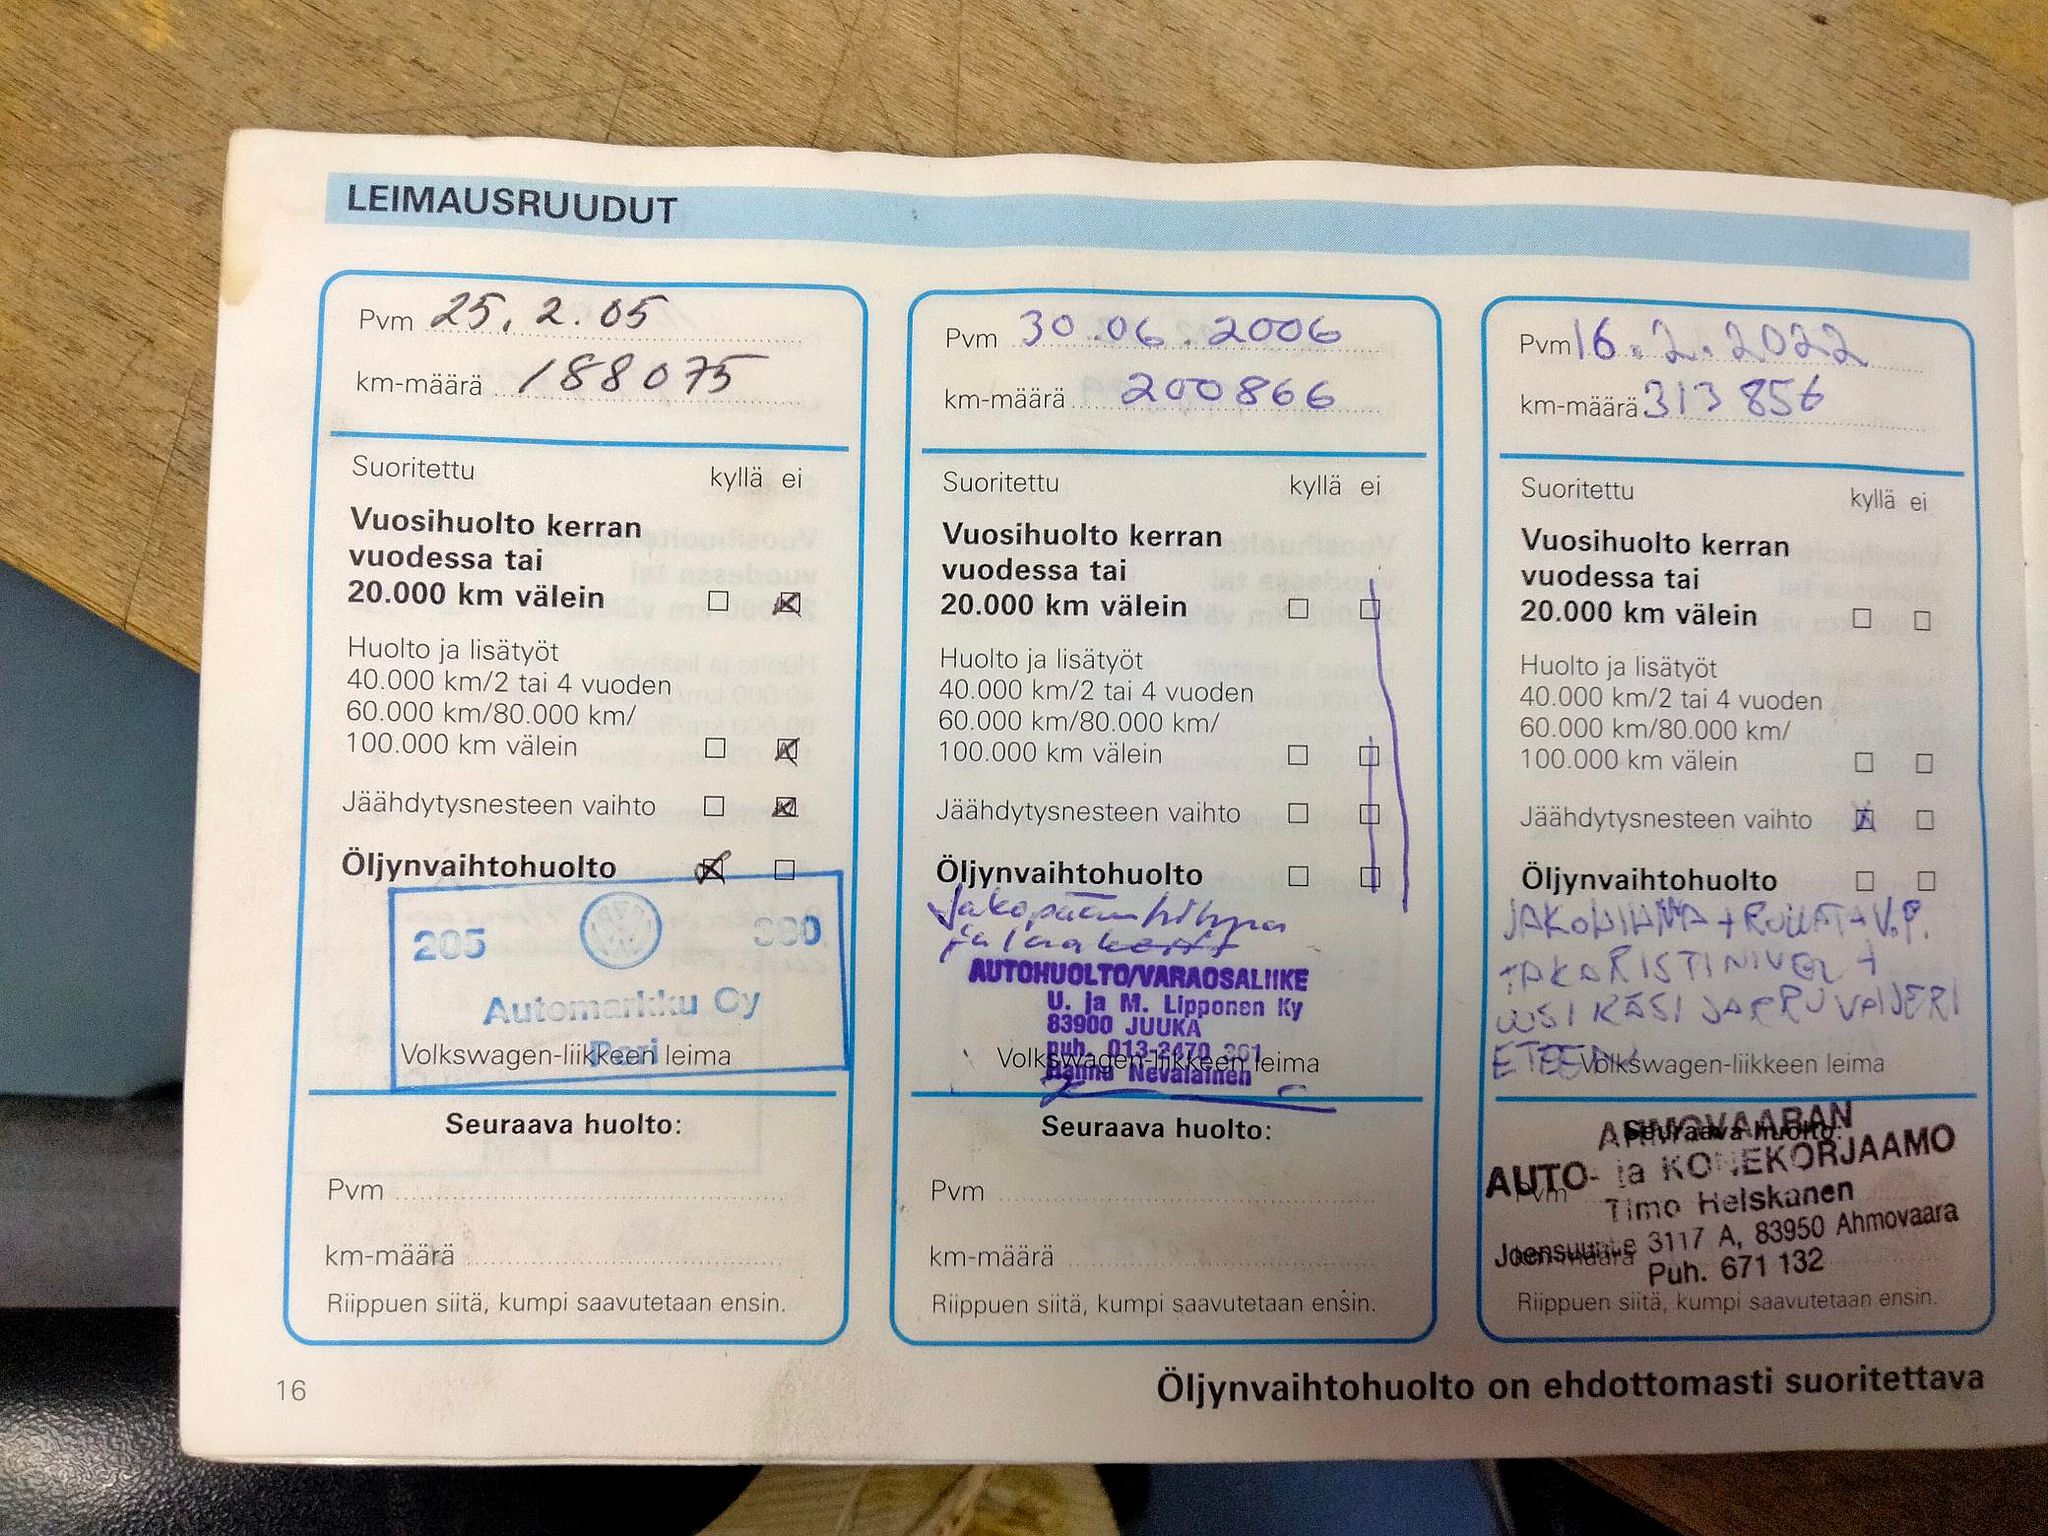 LEIMAUSRUUDUT
Pvm 25.2.05
km-määrä 188075
Suoritettu kyllä ei
Vuosihuolto kerran
vuodessa tai
20.000 km välein
Huolto ja lisätyöt
40.000 km/2 tai 4 vuoden
60.000 km/80.000 km/
100.000 km välein
Jäähdytysnesteen vaihto
Öljynvaihtohuolto
205
Automarkku Oy
Volkswagen-liikkeen leima
Seuraava huolto:
Pvm
km-määrä
Riippuen siitä, kumpi saavutetaan ensin.
Pvm 30.06.2006
km-määrä 200866
Suoritettu kyllä ei
Vuosihuolto kerran
vuodessa tai
20.000 km välein
Huolto ja lisätyöt
40.000 km/2 tai 4 vuoden
60.000 km/80.000 km/
100.000 km välein
Jäähdytysnesteen vaihto
Öljynvaihtohuolto
Jakopään hihna
AUTOHUOLTO/VARAOSALIIKE
U. ja M. Lipponen Ky
83900 JUUKA
puh. 013-2470
Volkswagen-liikkeen leima
Hannu Nevalainen
Seuraava huolto:
Pvm
km-määrä
Riippuen siitä, kumpi saavutetaan ensin.
Pvm 16.2.2022
km-määrä 313856
Suoritettu kyllä ei
Vuosihuolto kerran
vuodessa tai
20.000 km välein
Huolto ja lisätyöt
40.000 km/2 tai 4 vuoden
60.000 km/80.000 km/
100.000 km välein
Jäähdytysnesteen vaihto
Öljynvaihtohuolto
JAKOHIHNA + RULLAT + V.P.
+AKARISTINIVEL +
UUSI KÄSIJARRUVAIJERI
ETEEN
Volkswagen-liikkeen leima
Seuraava huolto:
AHMOVAARAN
AUTO- ja KONEKORJAAMO
Pvm
Timo Heiskanen
Joensuuntie 3117 A, 83950 Ahmovaara
km-määrä
Puh. 671 132
Riippuen siitä, kumpi saavutetaan ensin.
16
Öljynvaihtohuolto on ehdottomasti suoritettava